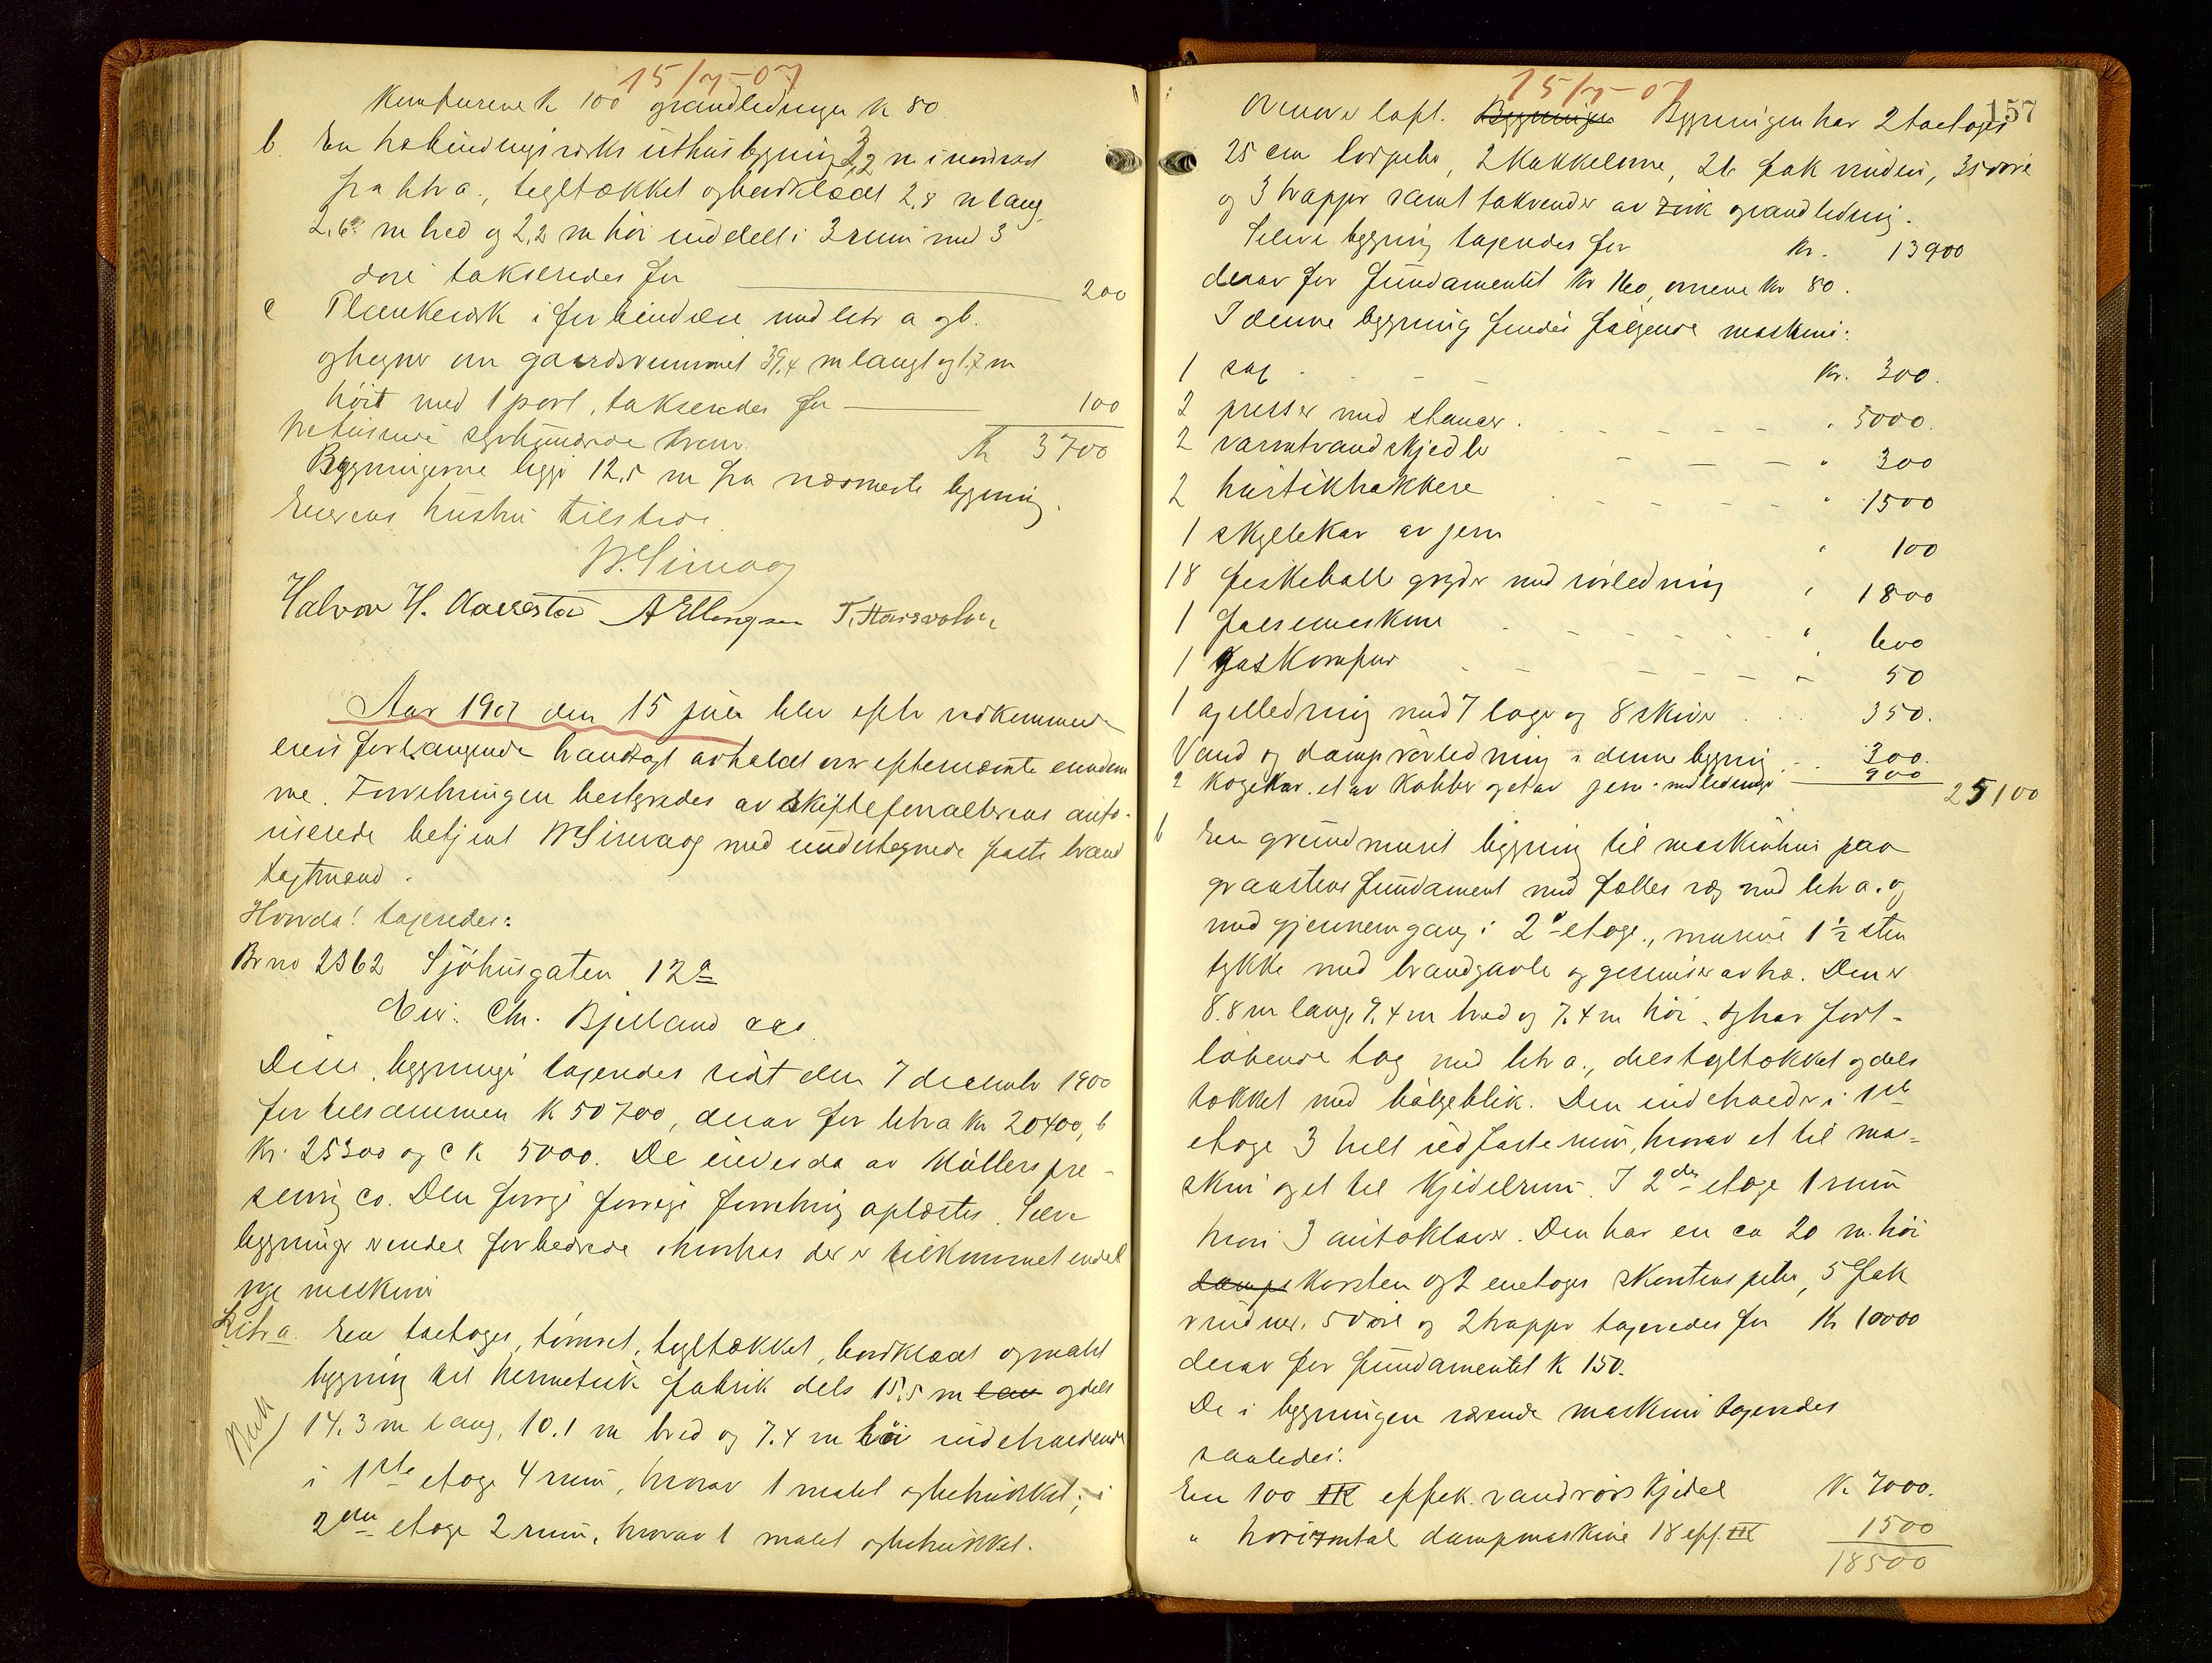 15/7-07
Komfurene kr 100 vandledningen kr 80
b. En trebindingsverks uthusbygning 3,2 m i nordvest
fra litr a., tegltækket og bordklædt 2.8 m lang,
2.6 m bred og 2,2 m høi inddelt i 3 rum med 3
døre takseredes for 200
c Plankeverk i forbindelse med litr a og b.
og hegner om gaardsrummet 39,4 m langt og 1.7 m
høit med 1 port, takseredes for 100
tretusene syvhundrede kroner. Kr 3700
Bygningerne ligger 12,5 m fra nærmeste bygning.
Eierens hustru tilstede.
W. Simaog
Halvor H. A. Ellingsen T.
Aar 1907 den 15 juli blev efter vedkommende
eiers forlangende brandtagt avholdt over efternævnte eiendom
me. Forretningen bestyredes av skifteforvalterens auto-
riserede betjent W Simaog med undertegnede faste brand
tagtmænd.
Hvorda! tageredes:
Br no 2362 Sjöhusgaten 12a
Eier: Chr. Bjelland & co
Disse bygninger tageredes sidst den 7 december 1900
for tilsammen kr 50700, derav for litr a kr 20400, b
kr. 25300 og c kr 5000. De eiedes da av Møllers pre-
serving co. Den forrige forrige forretning oplæstes. Selve
bygninger er endel forbedrede hvorhos der er tilkommet endel
nye maskiner
Litr a. En toetages, tømret, tegltækket, bordklædt og malt
bygning til hermetik fabrik dels 15,5 m lan og dels
14.3 m lang, 10.1 m bred og 7.4 m høi indeholdende
i 1ste etage 4 rum, hvorav 1 malet og betrukket; i
2den etage 2 rum, hvorav 1 malet og betrukket.
157
15/7-07
Ovenover loft. Bygningen Bygningen har 2 toetages
25 cm lospiber, 2 kakkelovne, 26 fak vinduer, 35 døre
og 3 trapper samt takrender av zink vandledning.
Selve bygning tageredes for kr. 13900
derav for fundamentet kr 160, ovnene kr 80.
I denne bygning findes følgende maskiner:
1 sag kr. 300.
2 presser med stanser . " 5000.
2 varmtvandskjedler " 300
2 hakkere " 1500
1 skyllekar av jern " 100
18 fiskeballe gryder med rørledning " 1800
1 falsemaskine " 600
1 gaskomfur " 50
1 axelledning med 7 lager og 8 skiver 350.
Vand og damprørledning i denne bygning 300.
2 kogekar. et av kobber og et av jern med ledninger 900 25100
b En grundmuret bygning til maskinhus paa
graastens fundament med fælles væg med litr a. og
med gjennemgang i 2den etage., murene 1 1/2 sten
tykke med brandgavle og gesimser av træ. Den er
8.8 m lang, 9.4 m bred og 7.4 m høi, og har fort-
løbende tag med litr a., dels tegltækket og dels
tækket med bølgeblik. Den indeholder i 1ste
etage 3 helt udførte rum, hvorav et til ma-
skin og et til kjedelrum. I 2den etage 1 rum
hvori 3 autoklaver. Den har en ca 20 m. høi
damps korsten og 2 enetages skorstens piber, 5 fak
vinduer, 5 døre og 2 trapper tageredes for kr 10000
derav for fundamentet kr 150.
De i bygningen værende maskiner tageredes
saaledes:
En 100 HK effek. vandrørs kjedel kr. 7000.
" horizontal dampmaskine 18 eff. HK 1500
18500